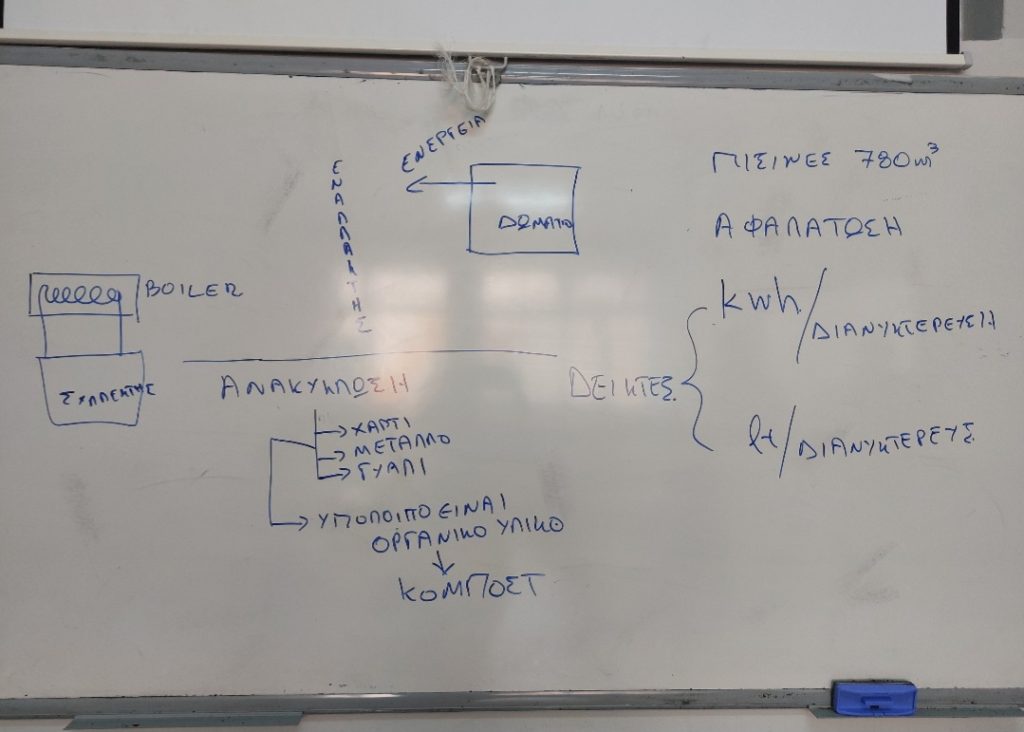 ΕΝΑΛΛΑΚΤΗΣ
ΕΝΕΡΓΕΙΑ
ΔΩΜΑΤΙΟ
BOILER
ΣΥΛΛΕΚΤΗΣ
ΑΝΑΚΥΚΛΩΣΗ
ΧΑΡΤΙ
ΜΕΤΑΛΛΟ
ΓΥΑΛΙ
ΥΠΟΛΟΙΠΟ ΕΙΝΑΙ
ΟΡΓΑΝΙΚΟ ΥΛΙΚΟ
ΚΟΜΠΟΣΤ
ΠΙΣΙΝΕΣ 780m³
ΑΦΑΛΑΤΩΣΗ
ΔΕΙΚΤΕΣ
kwh/ΔΙΑΝΥΚΤΕΡΕΥΣΗ
lt/ΔΙΑΝΥΚΤΕΡΕΥΣ